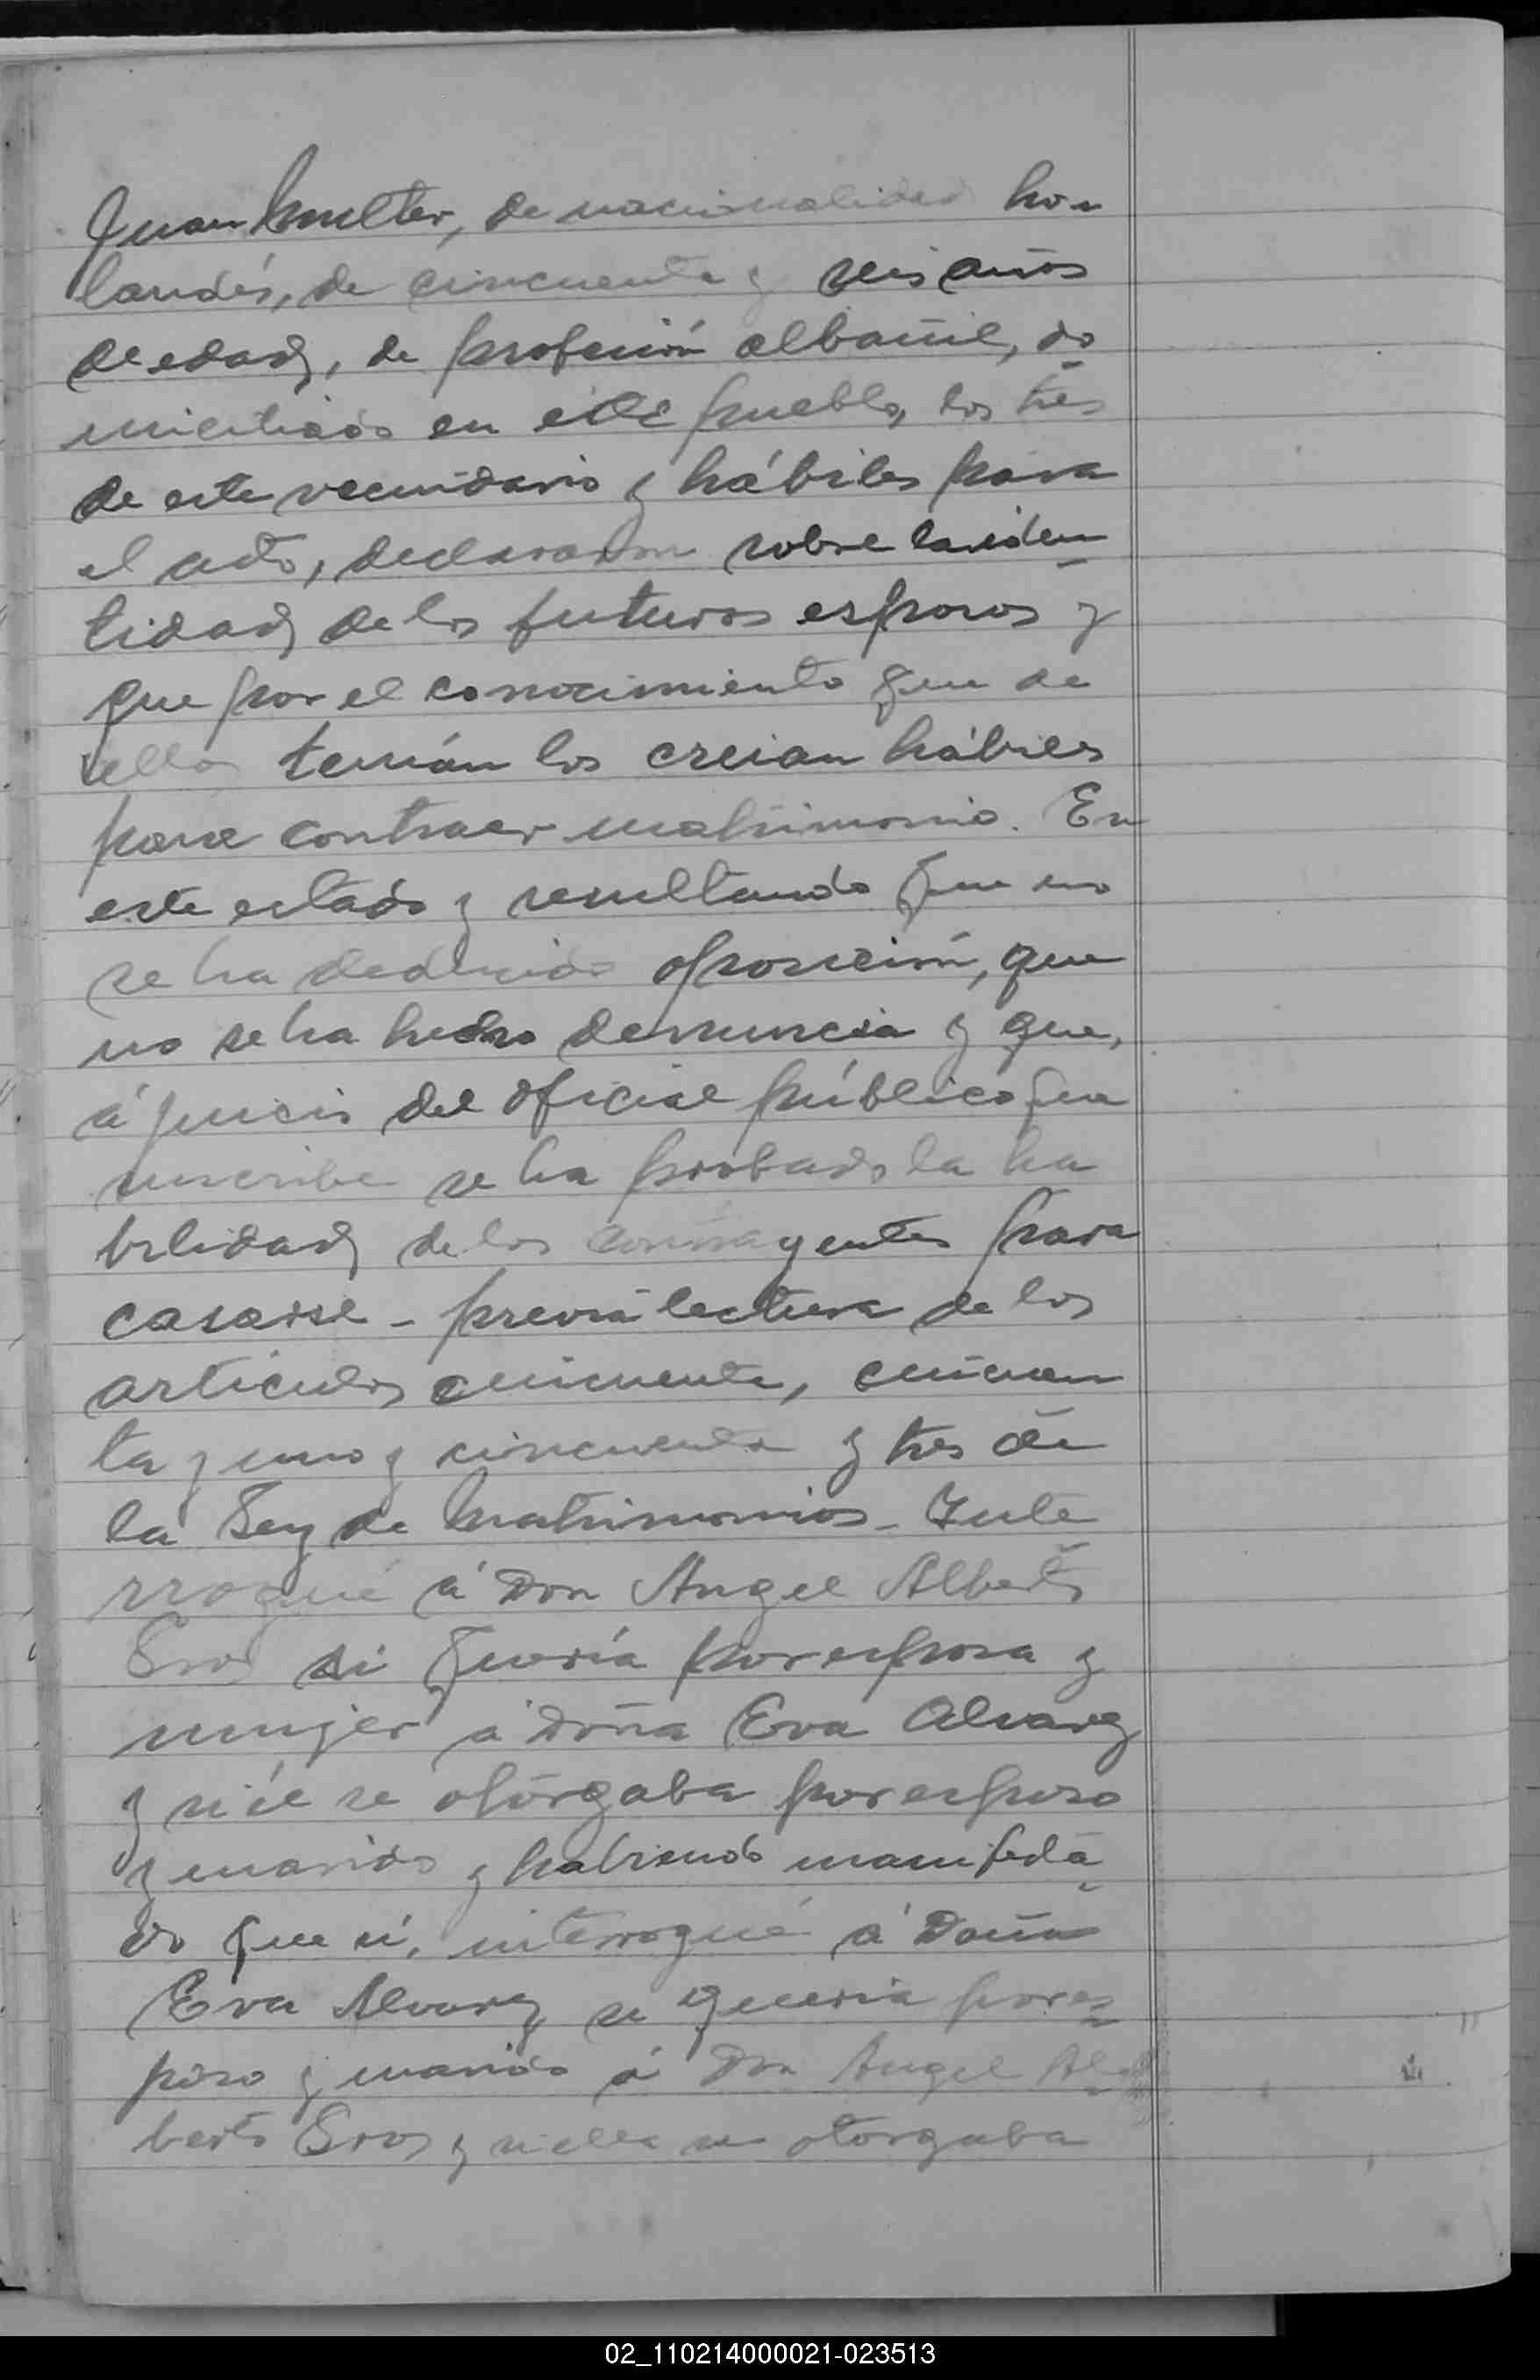 Juan Smelter, de nacionalidad ho-
landés, de cincuenta y seis años
de edad, de profesión albañil, do-
miciliado en este pueblo, los tres
de este vecindario y hábiles para
el acto, declararon sobre la iden-
tidad de los futuros esposos y
que por el conocimiento que de
ellos tenían los creian hábiles
para contraer matrimonio. En
este estado y resultando que no
se ha deducido oposición, que
no se ha hecho denuncia y que,
á juicio del oficial público que
suscribe se ha probado la ha
bilidad de los contrayentes para
casarse - previa lectura de los
artículos cincuenta, cincuen
ta y uno y cincuenta y tres de
la Ley de Matrimonios - Inte
rrogué á Don Angel Alberto
Eros si quería por esposa y
mujer á Doña Eva Alvarez
y si él se otorgaba por esposo
y marido y habiendo manifesta-
do que sí, interrogué á Doña
Eva Alvarez si quería por es-
poso y marido á Don Angel Al-
berto Eros y si ella se otorgaba
02_110214000021-023513